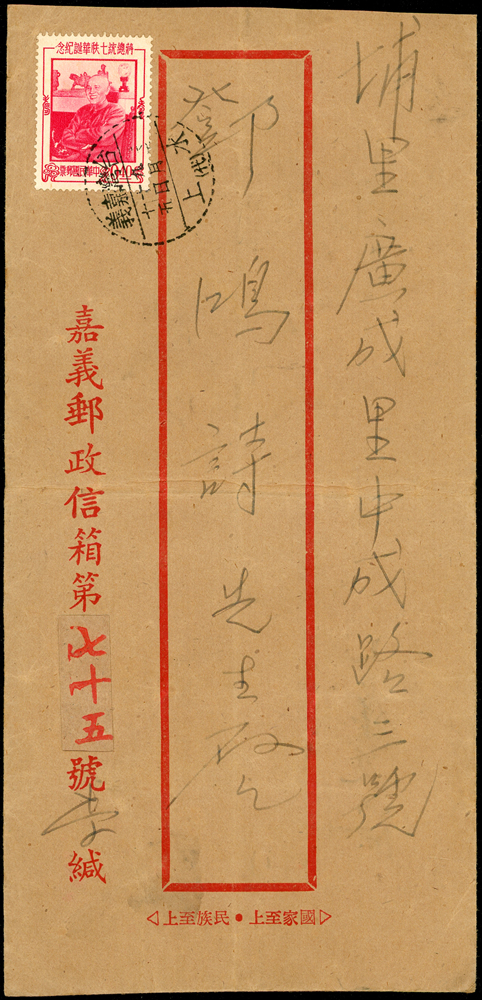 埔里廣成里中成路三號
鄧鴻詩先生啟
嘉義郵政信箱第七十五號李緘
國家至上•民族至上
蔣總統七秩華誕紀念
中華民國郵票
嘉義